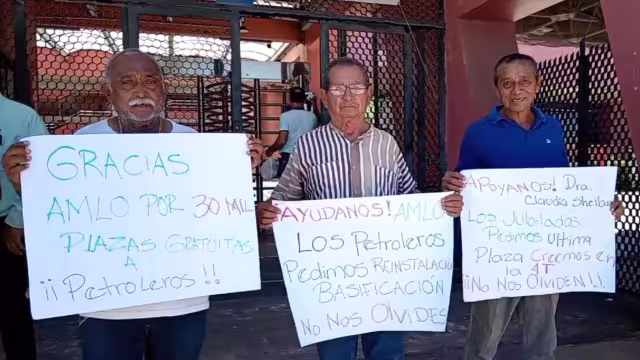 GRACIAS
AMLO POR 30 MIL
PLAZAS GRATUITAS
A
¡¡Petroleros!!
AYUDANOS! AMLO
LOS Petroleros
Pedimos REINSTALACIÓN
BASIFICACIÓN
No Nos OLVIDES
APOYANOS! Dra.
Claudia Sheibaum
Los Jubilados
Pedimos Ultima
Plaza Creemos en
la 4T
¡¡No Nos OLVIDEN!!